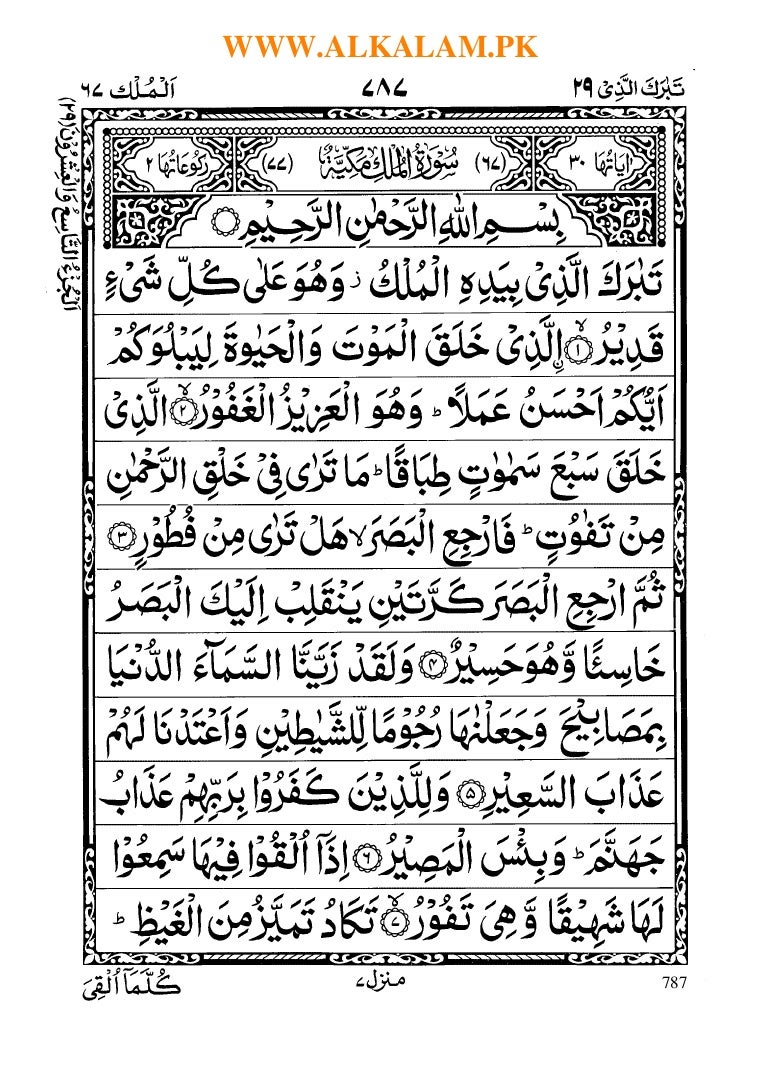 WWW.ALKALAM.PK
تَبٰرَكَ الَّذِیْ ۲۹
۷۸۷
اَلْمُلْك ۶۷
اَلْجُزْءُ التَّاسِعُ وَالْعِشْرُوْنَ (۲۹)
اٰیَاتُهَا ۳۰ (۶۷) سُوْرَةُ الْمُلْكِ مَكِّیَّةٌ (۷۷) رُكُوْعَاتُهَا ۲
بِسْمِ اللّٰهِ الرَّحْمٰنِ الرَّحِیْمِ ○
تَبٰرَكَ الَّذِیْ بِیَدِهِ الْمُلْكُ ز وَهُوَ عَلٰی كُلِّ شَیْءٍ
قَدِیْرُ ۙ﴿۱﴾ ۣالَّذِیْ خَلَقَ الْمَوْتَ وَالْحَیٰوةَ لِیَبْلُوَكُمْ
اَیُّكُمْ اَحْسَنُ عَمَلًا ؕ وَهُوَ الْعَزِیْزُ الْغَفُوْرُ ۙ﴿۲﴾ الَّذِیْ
خَلَقَ سَبْعَ سَمٰوٰتٍ طِبَاقًا ؕ مَا تَرٰی فِیْ خَلْقِ الرَّحْمٰنِ
مِنْ تَفٰوُتٍ ؕ فَارْجِعِ الْبَصَرَ ۙ هَلْ تَرٰی مِنْ فُطُوْرٍ ﴿۳﴾
ثُمَّ ارْجِعِ الْبَصَرَ كَرَّتَیْنِ یَنْقَلِبْ اِلَیْكَ الْبَصَرُ
خَاسِئًا وَّهُوَ حَسِیْرٌ ﴿۴﴾ وَلَقَدْ زَیَّنَّا السَّمَآءَ الدُّنْیَا
بِمَصَابِیْحَ وَجَعَلْنٰهَا رُجُوْمًا لِّلشَّیٰطِیْنِ وَاَعْتَدْنَا لَهُمْ
عَذَابَ السَّعِیْرِ ﴿۵﴾ وَلِلَّذِیْنَ كَفَرُوْا بِرَبِّهِمْ عَذَابُ
جَهَنَّمَ ؕ وَبِئْسَ الْمَصِیْرُ ﴿۶﴾ اِذَاۤ اُلْقُوْا فِیْهَا سَمِعُوْا
لَهَا شَهِیْقًا وَّهِیَ تَفُوْرُ ۙ﴿۷﴾ تَكَادُ تَمَیَّزُ مِنَ الْغَیْظِ ؕ
787
منزل ۷
كُلَّمَاۤ اُلْقِیَ